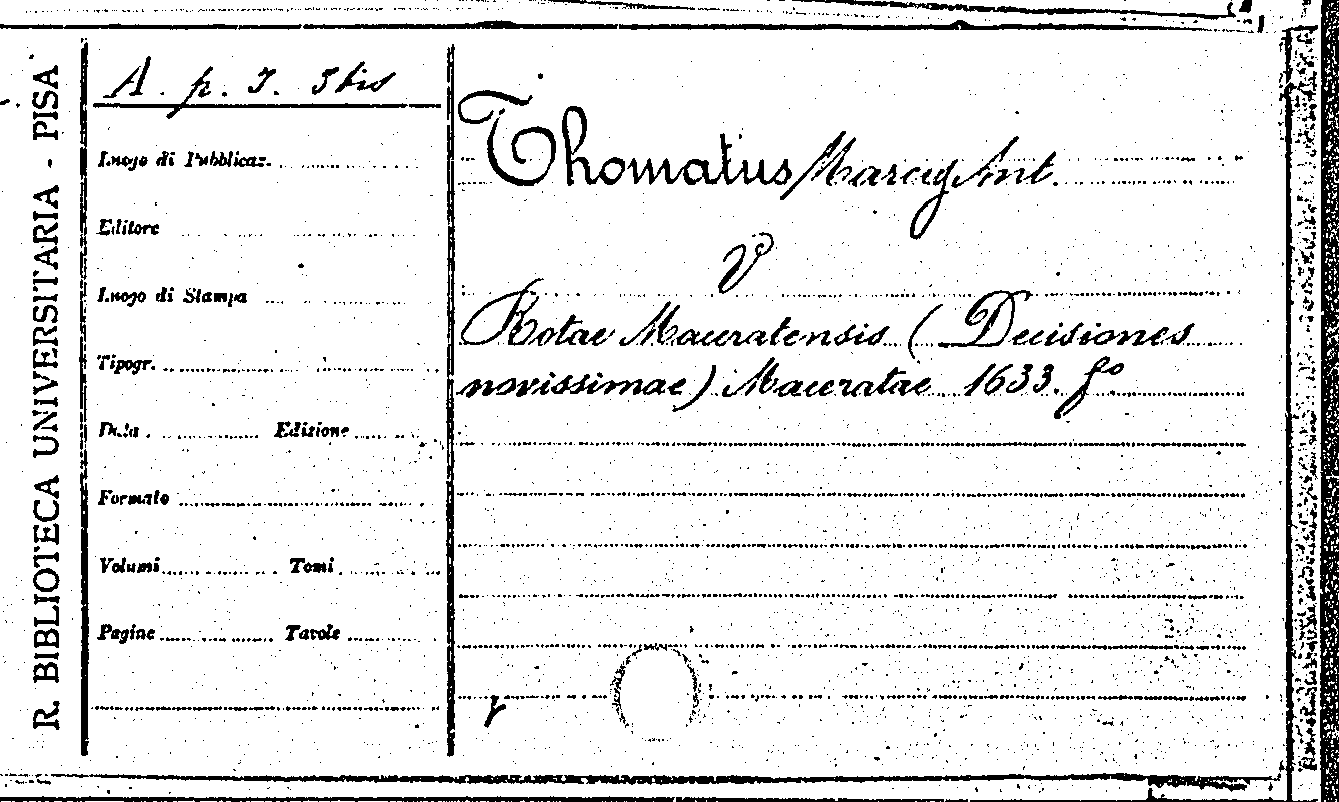 R. BIBLIOTECA UNIVERSITARIA - PISA
A. p. 3. 3 bis
Luogo di Pubblicaz.
Editore
Luogo di Stampa
Tipogr.
Data Edizione
Formato
Volumi Tomi
Pagine Tavole
Thomatus Marcus Ant.
V
Rotae Maceratensis (Decisiones
novissimae) Maceratae 1633. fº
r